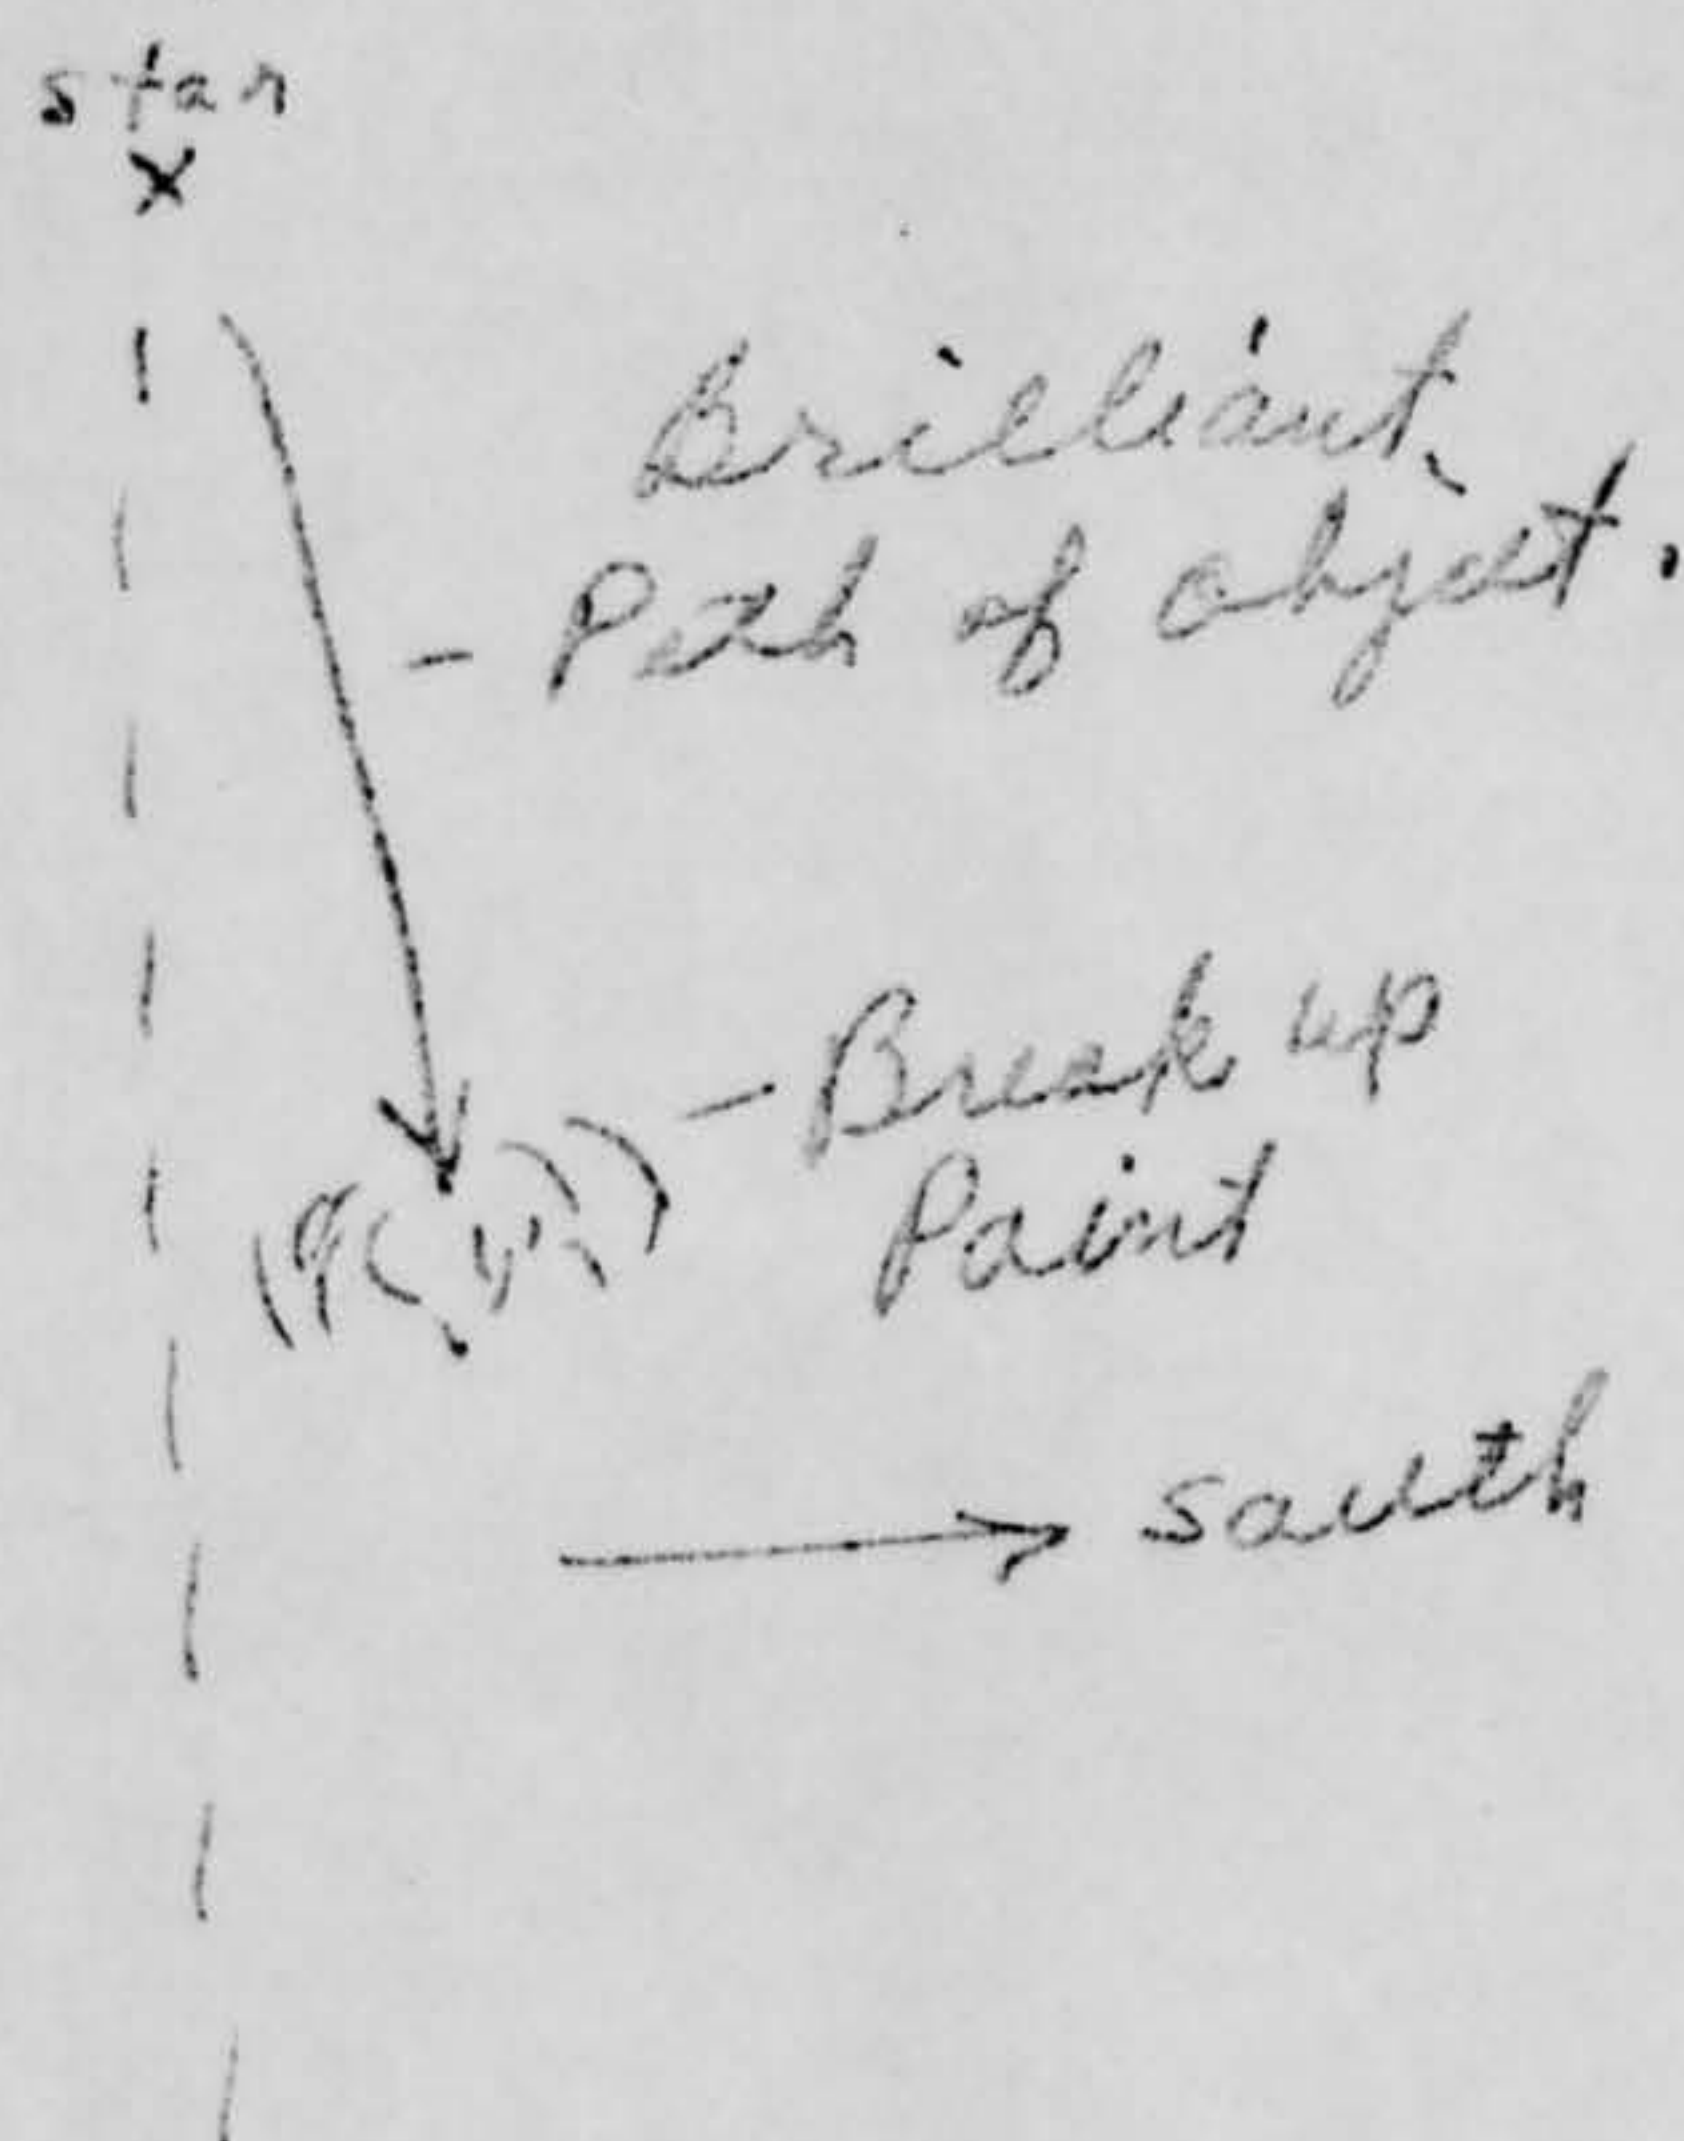 star
X
Brilliant.
- Path of object.
- Break up
Point
south